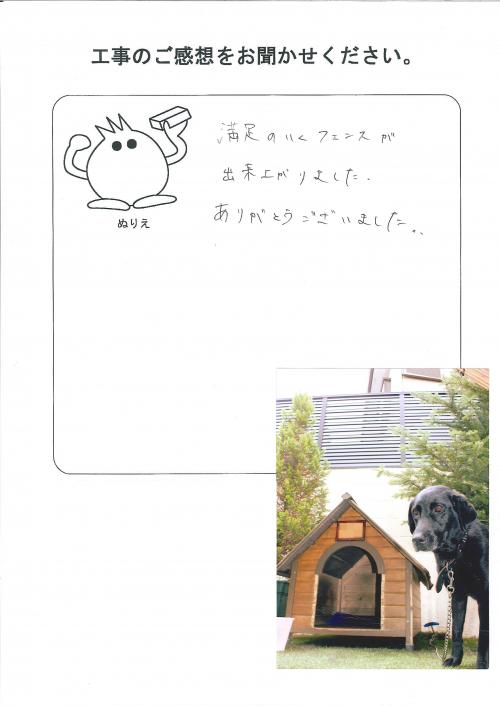 工事のご感想をお聞かせください。
満足のいくフェンスが
出来上がりました.
ありがとうございました..
ぬりえ